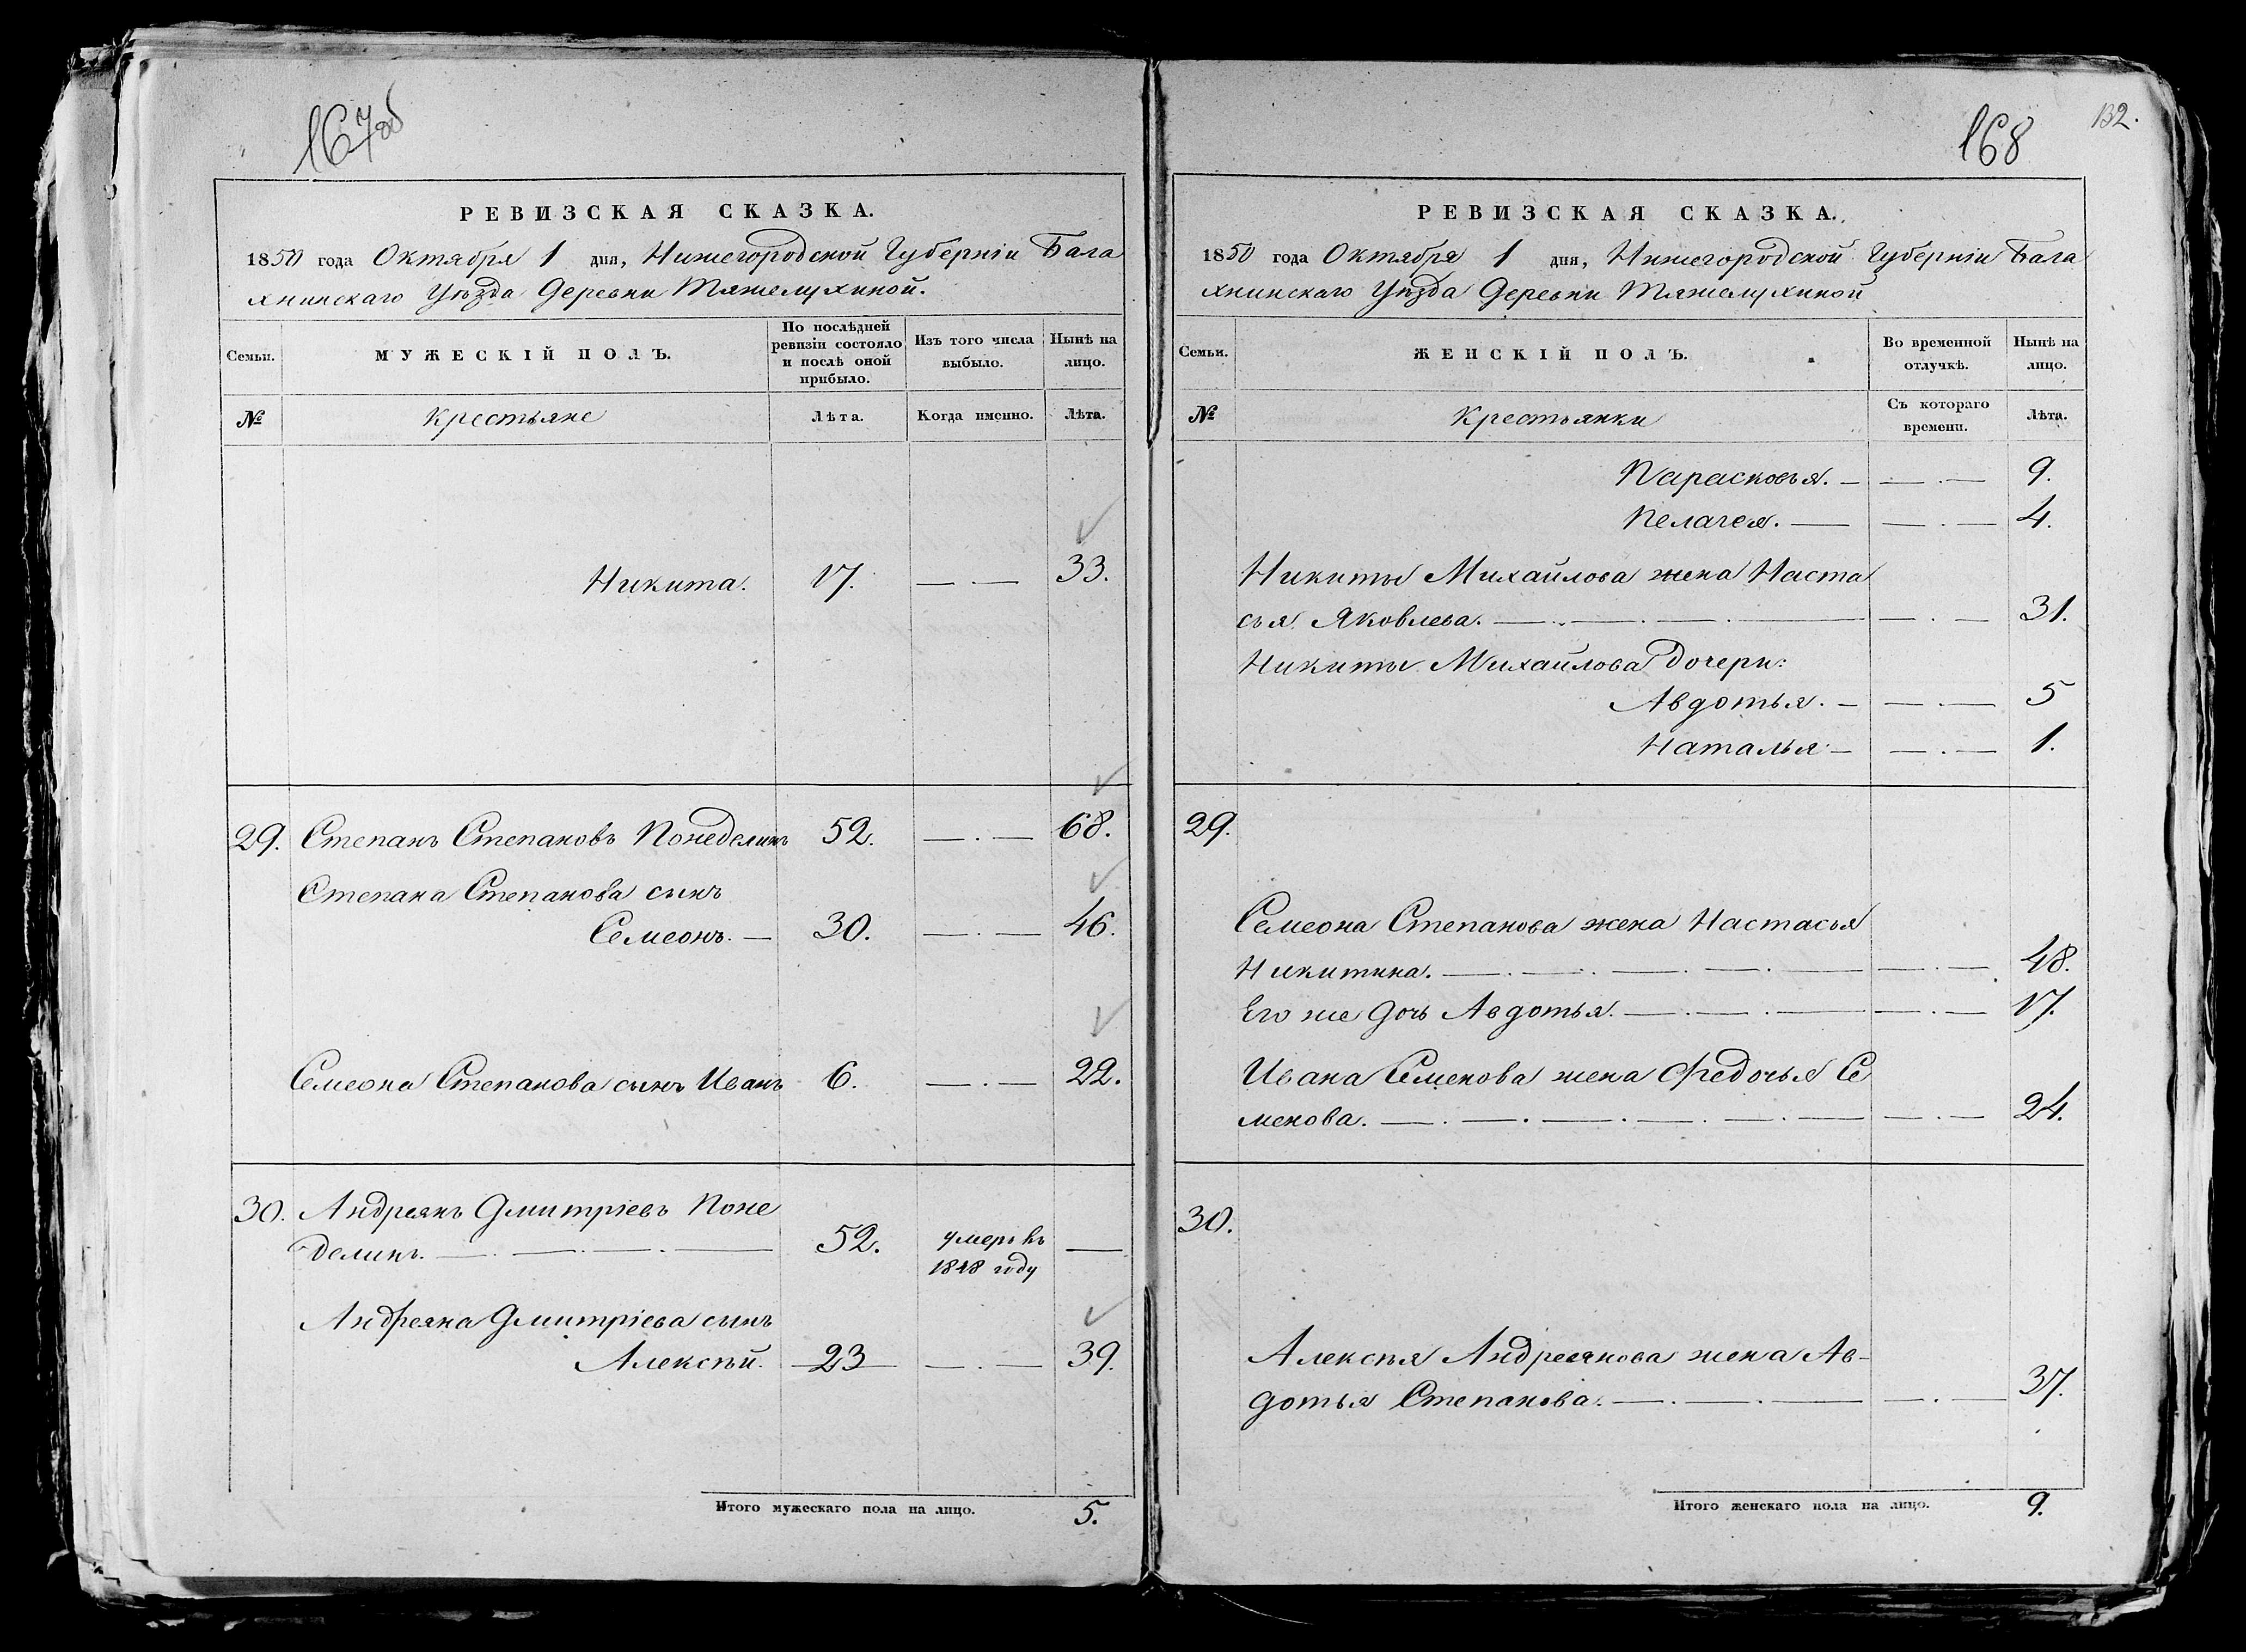 167об
РЕВИЗСКАЯ СКАЗКА.
1850 года Октября 1 дня, Нижегородской Губерніи Бала
хнинскаго Уѣзда Деревни Тяжелухиной.
Семьи.
МУЖЕСКІЙ ПОЛЪ.
По послѣдней ревизіи состояло и послѣ оной прибыло.
Изъ того числа выбыло.
Нынѣ на лицо.
№ Крестьяне Лѣта. Когда именно. Лѣта.
Никита. 17. 33.
29. Степанъ Степановъ Понеделинъ 52. 68.
Степана Степанова сынъ
Семеонъ. 30. 46.
Семеона Степанова сынъ Иванъ 6. 22.
30. Андреянъ Дмитріевъ Поне
делинъ. 52. умеръ въ 1848 году
Андреяна Дмитріева сынъ
Алексѣй. 23 39.
Итого мужескаго пола на лицо. 5.
168
132.
РЕВИЗСКАЯ СКАЗКА.
1850 года Октября 1 дня, Нижегородской Губерніи Бала
хнинскаго Уѣзда Деревни Тяжелухиной
Семьи.
ЖЕНСКІЙ ПОЛЪ.
Во временной отлучкѣ.
Нынѣ на лицо.
№ Крестьянки Съ котораго времени. Лѣта.
Парасковья. 9.
Пелагея. 4.
Никиты Михайлова жена Наста
сья Яковлева. 31.
Никиты Михайлова дочери:
Авдотья. 5
Наталья 1.
29.
Семеона Степанова жена Настасья
Никитина. 48.
Его же дочь Авдотья. 17.
Ивана Семенова жена Федосья Се
менова. 24.
30.
Алексѣя Андреянова жена Ав-
дотья Степанова. 37.
Итого женскаго пола на лицо. 9.